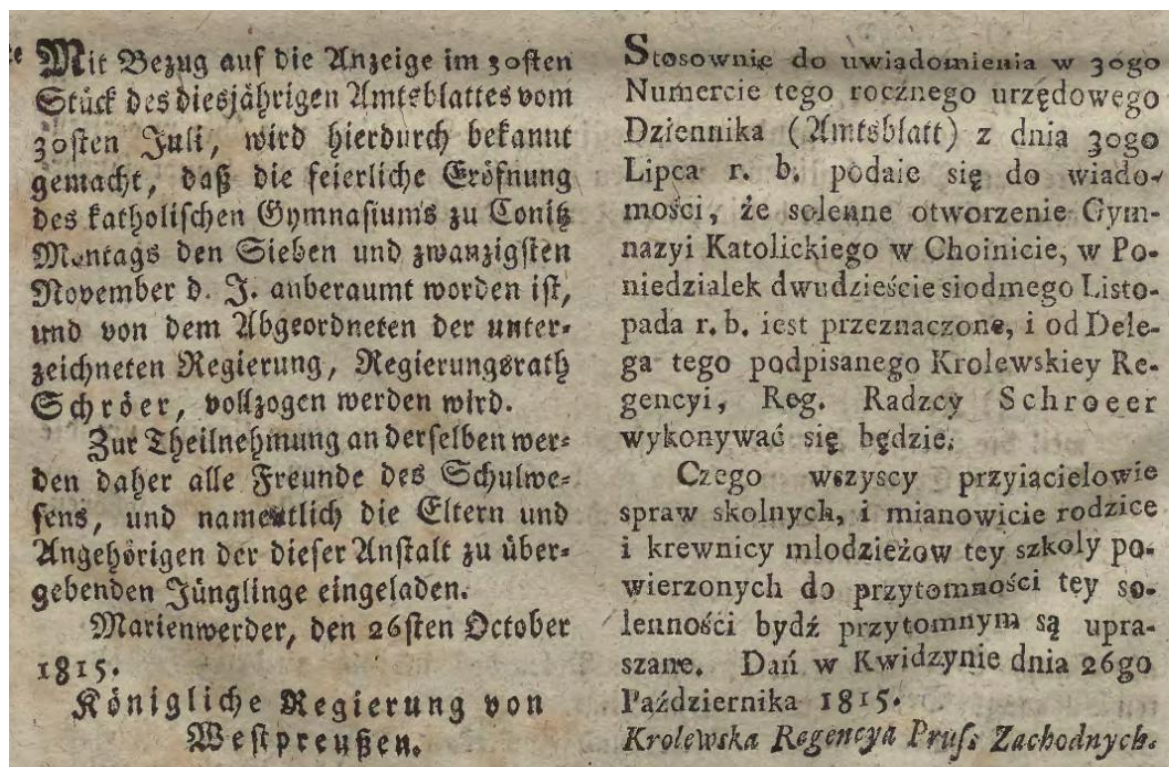 Mit Bezug auf die Anzeige im 30sten
Stück des diesjährigen Amtsblattes vom
30sten Juli, wird hierdurch bekannt
gemacht, daß die feierliche Eröfnung
des katholischen Gymnasiums zu Conitz
Montags den Sieben und zwanzigsten
November d. J. anberaumt worden ist,
und von dem Abgeordneten der unter-
zeichneten Regierung, Regierungsrath
Schröer, vollzogen werden wird.
Zur Theilnehmung an derselben wer-
den daher alle Freunde des Schulwe-
sens, und namentlich die Eltern und
Angehörigen der dieser Anstalt zu über-
gebenden Jünglinge eingeladen.
Marienwerder, den 26sten October
1815.
Königliche Regierung von
Westpreußen.
Stosownie do uwiadomienia w 30go
Numercie tego rocznego urzędowego
Dziennika (Amtsblatt) z dnia 30go
Lipca r. b. podaie się do wiado-
mości, że solenne otworzenie Gym-
nazyi Katolickiego w Choinicie, w Po-
niedzialek dwudzieście siodmego Listo-
pada r. b. iest przeznaczone, i od Dele-
ga tego podpisanego Krolewskiey Re-
gencyi, Reg. Radzcy Schroeer
wykonywać się będzie.
Czego wszyscy przyiacielowie
spraw skolnych, i mianowicie rodzice
i krewnicy mlodzieżow tey szkoly po-
wierzonych do przytomności tey so-
lenności bydź przytomnym są upra-
szane. Dań w Kwidzynie dnia 26go
Października 1815.
Krolewska Regencya Prus. Zachodnych.